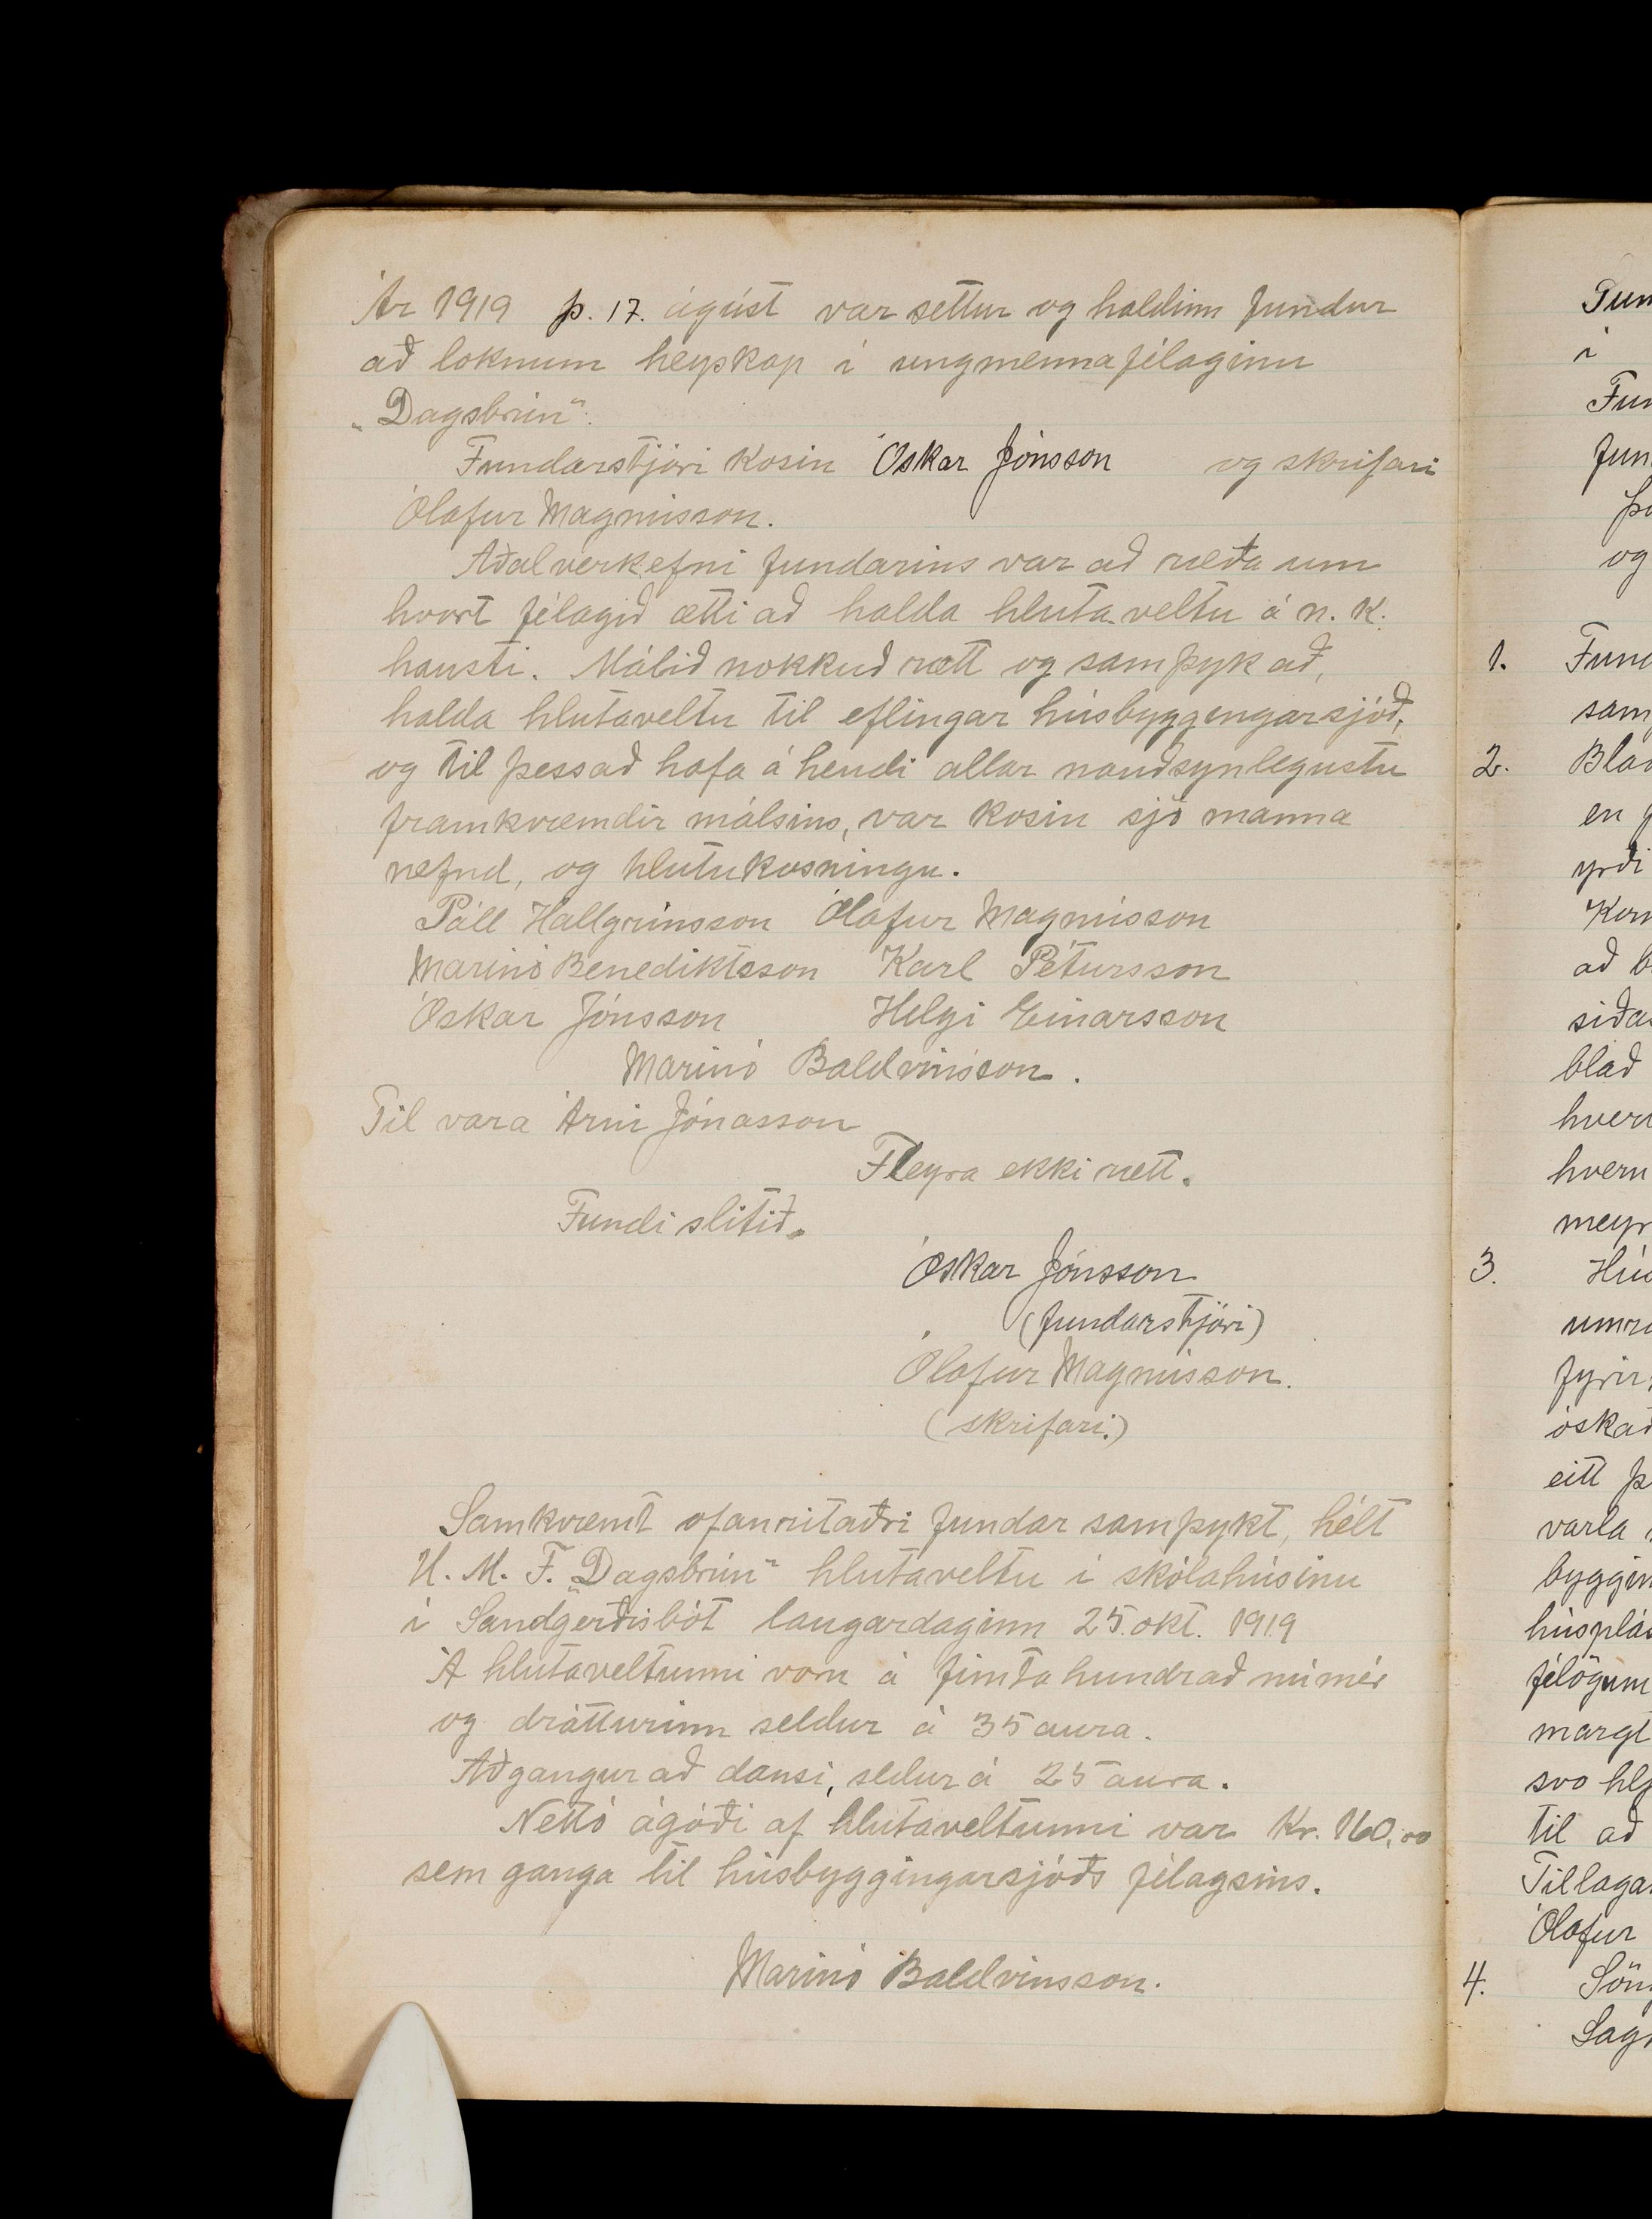 Ár 1919 þ. 17. ágúst var settur og haldinn fundur
að loknum heyskap í ungmennafélaginu
„Dagsbrún“.
Fundarstjóri kosin Óskar Jónsson og skrifari
Ólafur Magnússon.
Aðalverkefni fundarins var að ræða um
hvort félagið ætti að halda hlutaveltu á n. k.
hausti. Málið nokkuð rætt og samþyk að,
halda hlutaveltu til eflingar húsbyggingarsjóð,
og til þess að hafa á hendi allar nauðsynlegustu
framkvæmdir málsins, var kosin sjö manna
nefnd, og hlutu kosningu.
Páll Hallgrímsson Ólafur Magnússon
Marinó Benediktsson Karl Pétursson
Óskar Jónsson Helgi Einarsson
Marinó Baldvinsson.
Til vara Árni Jónasson
Fleyra ekki rætt.
Fundi slitið.
Óskar Jónsson
(fundarstjóri)
Ólafur Magnússon.
(skrifari.)
Samkvæmt ofanritaðri fundar samþykt, hélt
U. M. F. „Dagsbrún“ hlutaveltu í skólahúsinu
í Sandgerðisbót laugardaginn 25. okt. 1919
Á hlutaveltunni voru á fimta hundrað númer
og drátturinn seldur á 35 aura.
Aðgangur að dansi, seldur á 25 aura.
Nettó ágóði af hlutaveltunni var Kr. 160,00
sem ganga til húsbyggingarsjóðs félagsins.
Marinó Baldvinsson.
í
og
1. 
2. 
en
yrði
að
blað
3. 
eitt
varla
margt
til að
Ólafur
4.